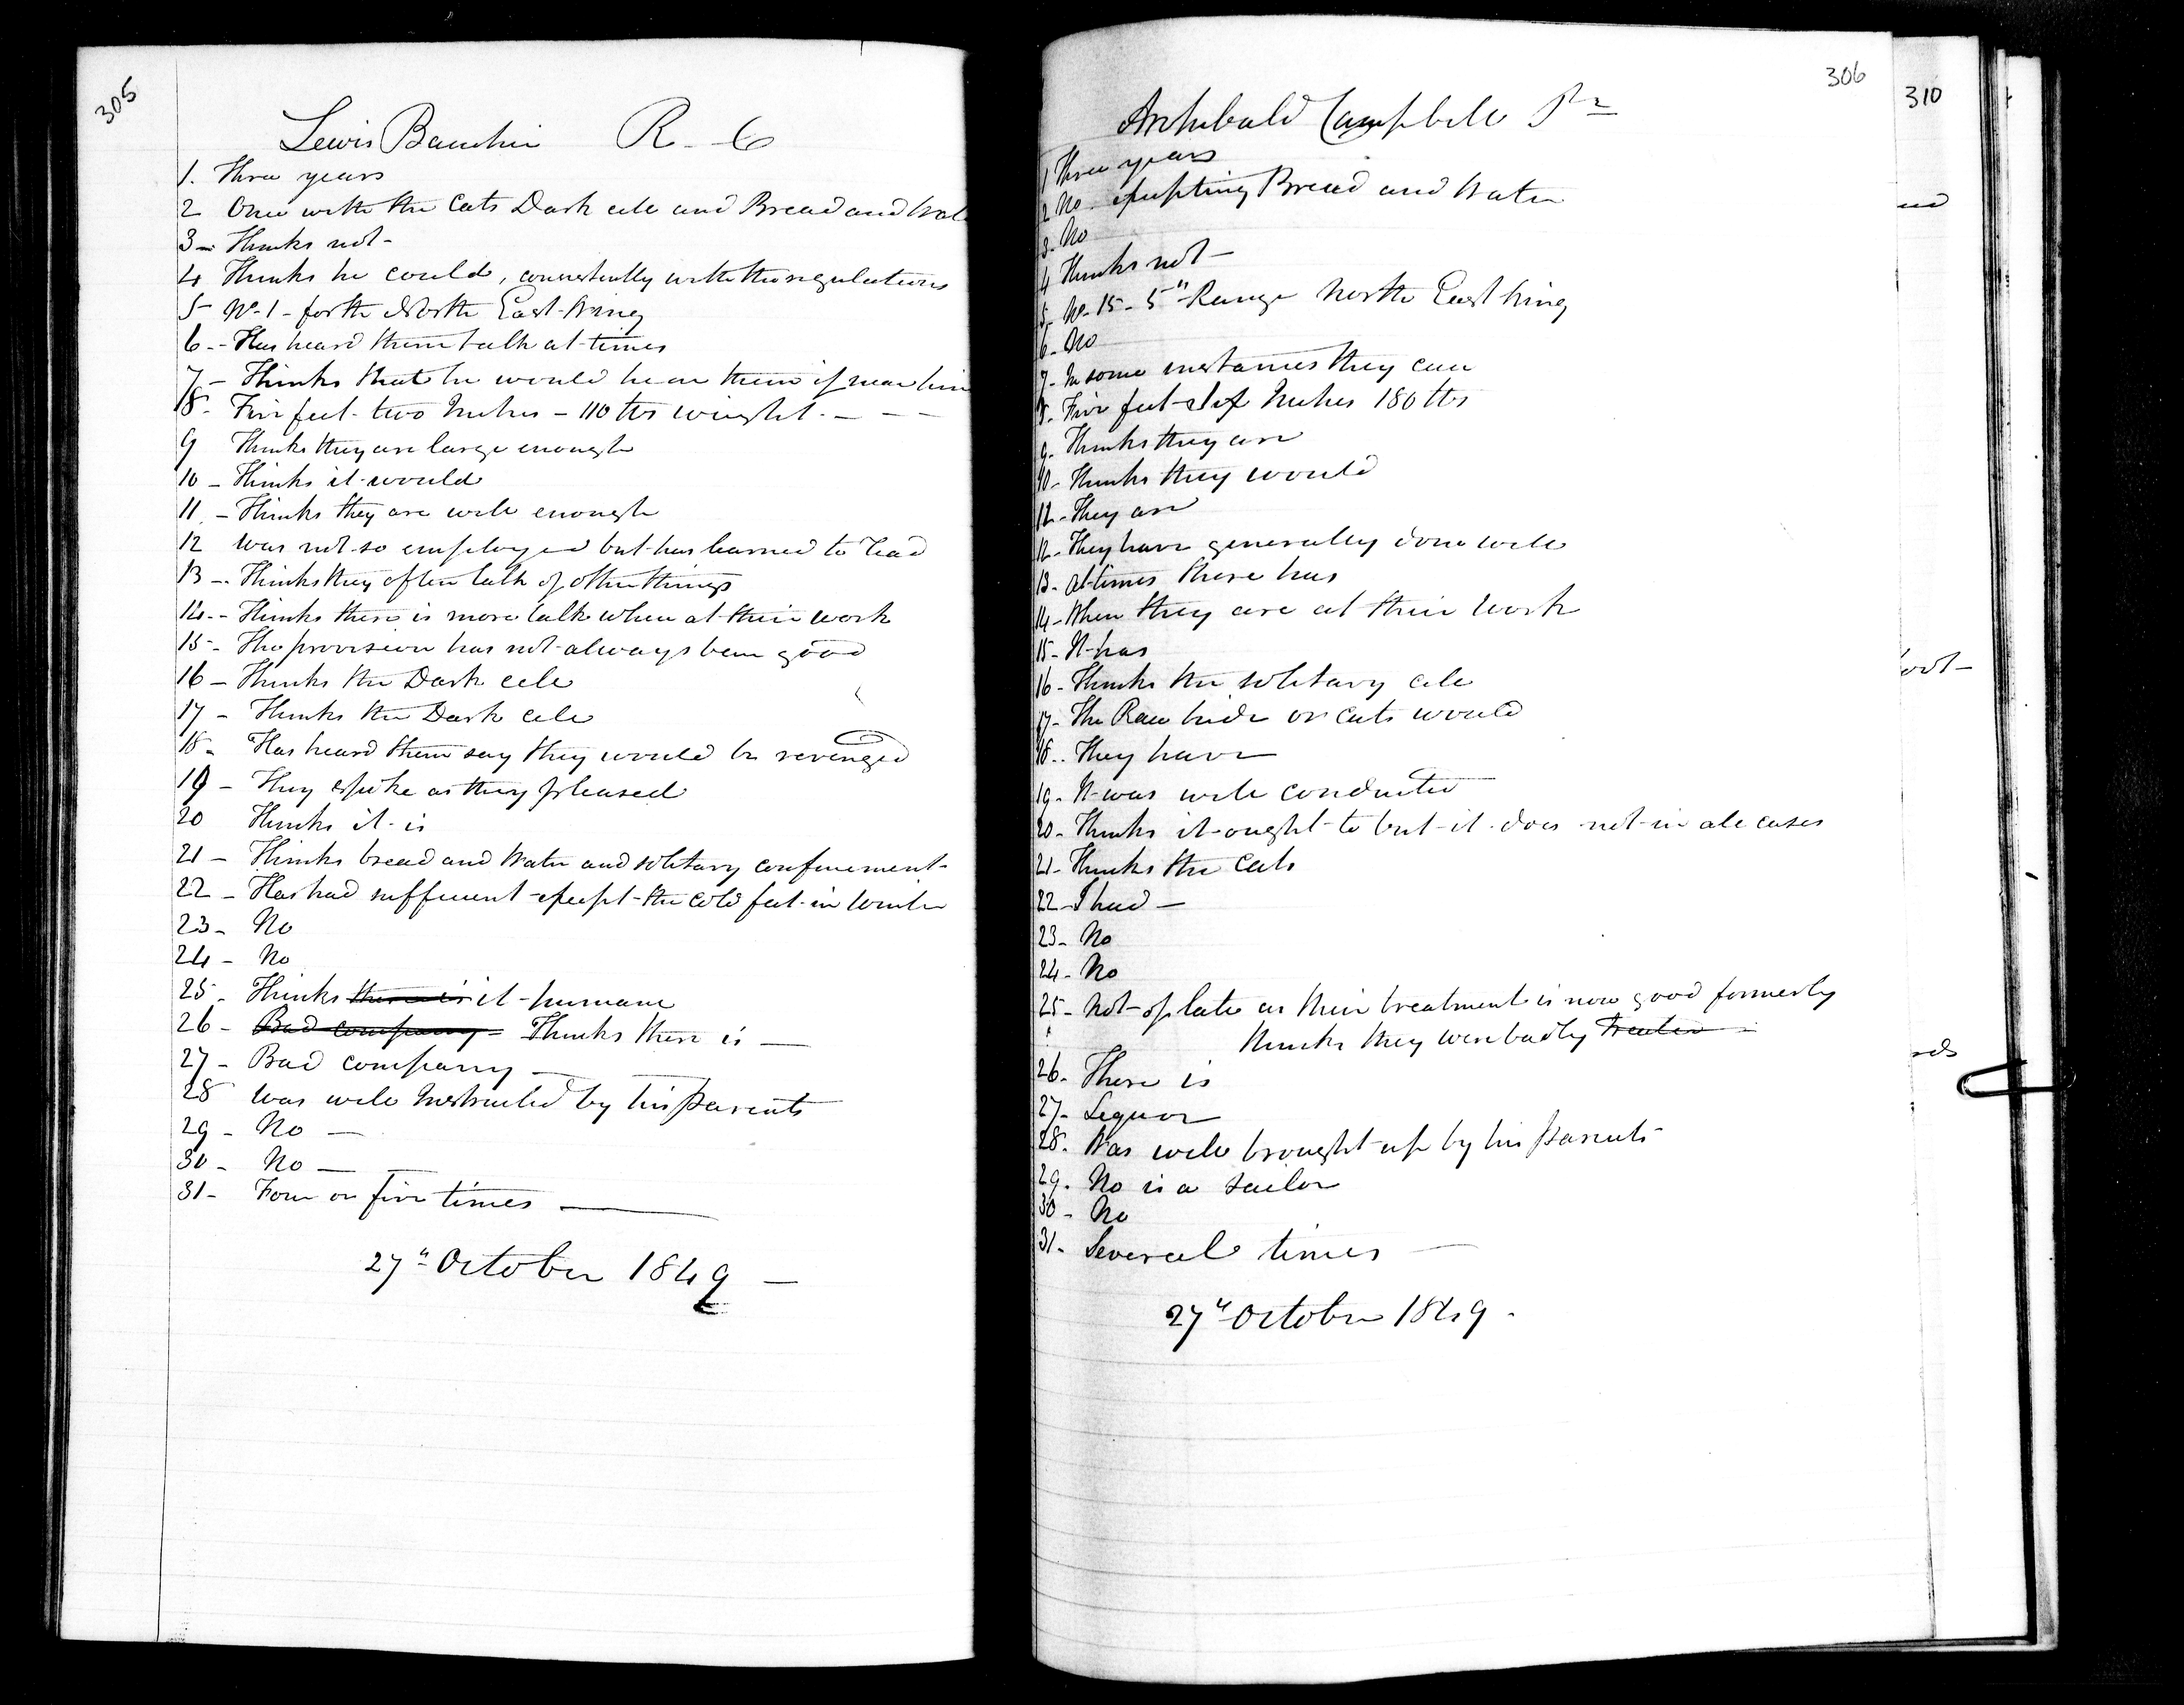 305
Lewis Bauchin R. C
1. Three years
2 Once with the Cats Dark cell and Bread and Wat
3 - Thinks not -
4 Thinks he could, consistently with the regulations
5 No. 1 - forth North East Wing
6 - Has heard them talk at times
7 - Thinks that he would hear them if near him
8 - Five feet two Inches - 110 lbs weight - - -
9 Thinks they are large enough
10 - Thinks it would
11 - Thinks they are well enough
12 Was not so employed but has learned to read
13 - Thinks they often talk of other things
14 - Thinks there is more talk when at their work
15 - The provision has not always been good
16 - Thinks the Dark cell
17 - Thinks the Dark cell
18 - Has heard them say they would be revenged
19 - They spoke as they pleased
20 Thinks it is
21 - Thinks bread and Water and solitary confinement -
22 - Has had sufficient except the cold feet in Winter
23 - No
24 - No
25 - Thinks there is it humane
26 - Bad company - Thinks there is —
27 - Bad company —
28 Was well Instructed by his Parents
29 - No —
30 - No —
31 - Four or five times —
27" October 1849 —
306
Archibald Campbell Pr
1 Three years
2 No excepting Bread and Water
3 - No
4 Thinks not —
5 - No. 15 - 5" Range North East Wing
6 - No
7 - In some instances they can
8 - Five feet six Inches 180 lbs
9 - Thinks they are
10 - Thinks they would
11 - They are
12 - They have generally done well
13 - At times there has
14 - When they are at their work
15 - It has
16 - Thinks the solitary cell
17 - The Raw hide or Cats would
18 - They have
19 - It was well conducted
20 - Thinks it ought to but it does not in all cases
21 - Thinks the Cats
22 - I had —
23 - No
24 - No
25 - Not of late as their treatment is now good formerly
thinks they were badly treated -
26 - There is
27 - Liquor
28 - Was well brought up by his Parents
29 - No is a sailor
30 - No
31 - Several times —
27" October 1849 -
310